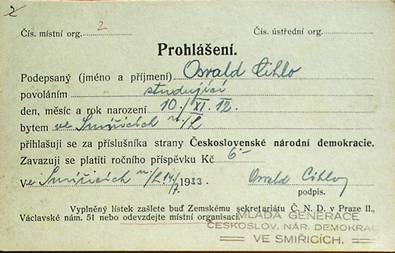 2
Čís. místní org. 2 Čís. ústřední org.
Prohlášení.
Podepsaný (jméno a příjmení) Osvald Cihlo
povoláním studující
den, měsíc a rok narození 10./XI. 12.
bytem ve Smiřicích n./L
přihlašuji se za příslušníka strany Československé národní demokracie.
Zavazuji se platiti ročního příspěvku Kč 6·-
Ve Smiřicích n./L 14/7. 1933 Osvald Cihlo
podpis.
Vyplněný lístek zašlete buď Zemskému sekretariátu Č. N. D. v Praze II.,
Václavské nám. 51 nebo odevzdejte místní organisaci.
MLADÁ GENERACE
ČESKOSLOV. NÁR. DEMOKRAC
VE SMIŘICÍCH.